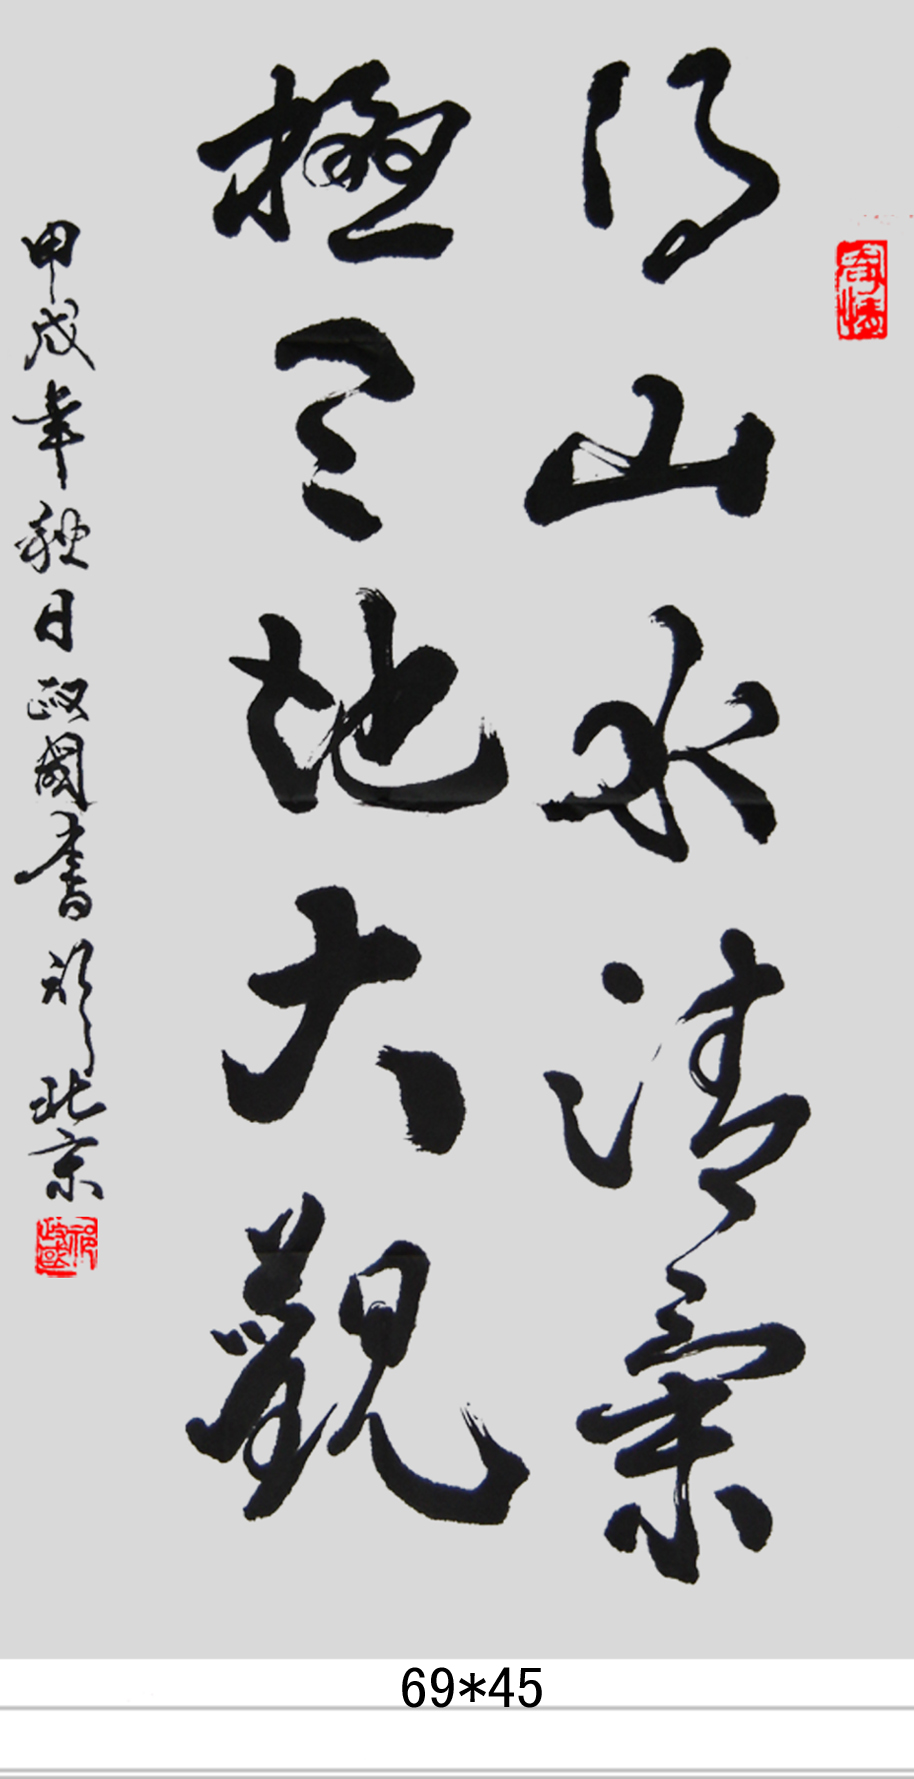 得山水清氣
極天地大觀
甲戌年秋日政國書於北京
69*45